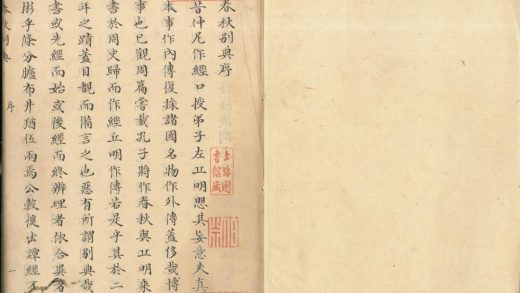 春秋別典序
昔仲尼作經口授弟子左丘明思其妄意失真
本事作內傳復採諸國名物作外傳蓋侈哉博
事也已觀周篇嘗載孔子將作春秋與丘明乘
書於周史歸而作經丘明作傳若是乎其於二
年之蹟蓋目覩而備言之也惡有所謂別典哉
書或先經而始或後經而終辦理者依合異者
彬乎條分臚布井猶伍兩焉公穀後出譚經
春秋別典 序 一
上海圖書館藏